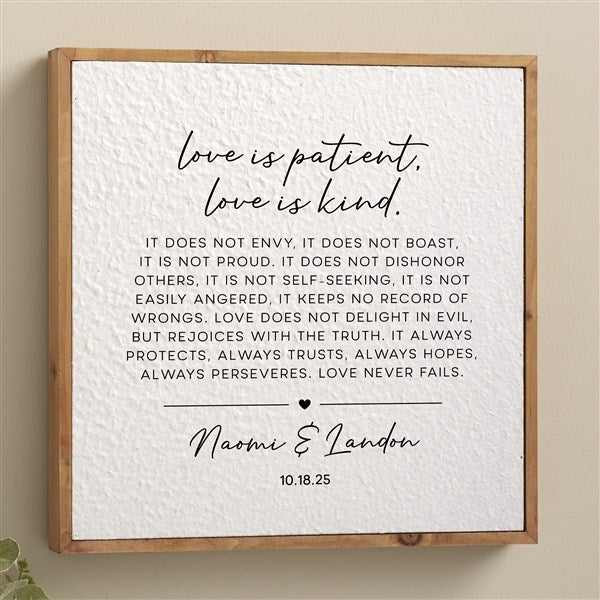 love is patient,
love is kind.
IT DOES NOT ENVY, IT DOES NOT BOAST,
IT IS NOT PROUD. IT DOES NOT DISHONOR
OTHERS, IT IS NOT SELF-SEEKING, IT IS NOT
EASILY ANGERED, IT KEEPS NO RECORD OF
WRONGS. LOVE DOES NOT DELIGHT IN EVIL,
BUT REJOICES WITH THE TRUTH. IT ALWAYS
PROTECTS, ALWAYS TRUSTS, ALWAYS HOPES,
ALWAYS PERSEVERES. LOVE NEVER FAILS.
Naomi & Landon
10.18.25